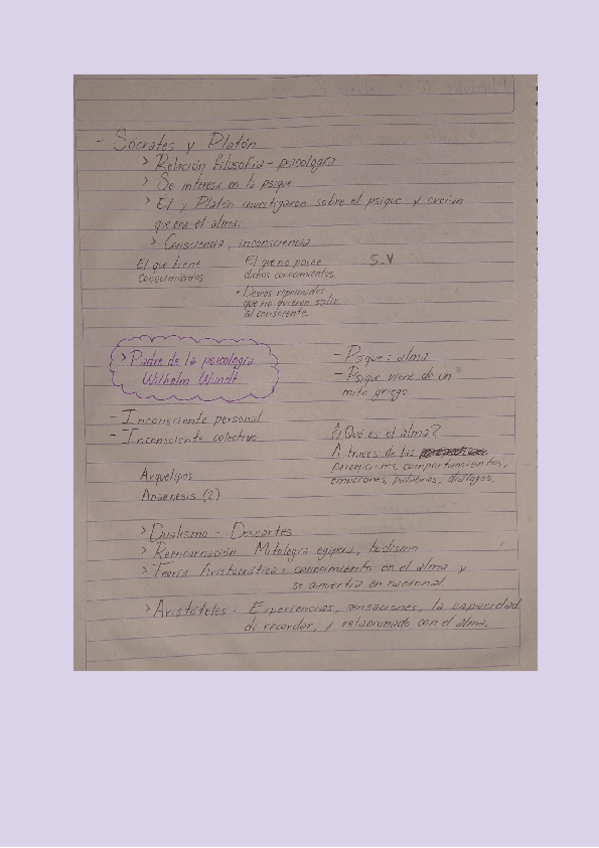 - Sócrates y Platón
> Relación filosofía - psicología
> Se interesa en la psique
> El y Platón investigaron sobre el psique y creían
que era el alma.
> Consciencia, inconsciencia
El que tiene
conocimientos
El que no posee
datos conocimientos
• Deseos reprimidos
que no quieren salir
al consciente.
S-V
> Padre de la psicología
Wilhelm Wundt
- Psque: alma
- Psique viene de un
mito griego
- Inconsciente personal
- Inconsciente colectivo
Arquetipos
Anaenesis (2)
¿Qué es el alma?
A través de las
percepciones, comportamientos,
emociones, palabras, diálogos.
> Dualismo - Descartes
> Reencarnación Mitología egipcia, budismo
> Teoría Aristocrática: conocimiento en el alma y
se convertía en racional
> Aristóteles: Experiencias, sensaciones, la capacidad
de recordar, y relacionado con el alma.